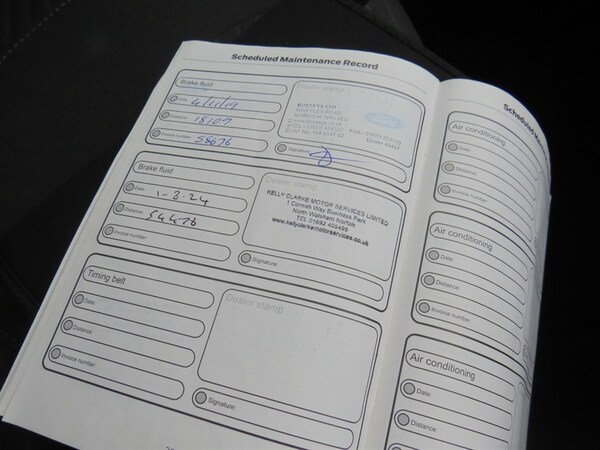 Scheduled Maintenance Record
Brake fluid
Date:
Distance: 18107
Invoice number: 58676
Dealer stamp
BUSSEYS LTD
Ford
Signature:
Brake fluid
Date: 1-3.24
Distance: 54476
Invoice number:
Dealer stamp
KELLY CLARKE MOTOR SERVICES LIMITED
1 Cornish Way Business Park
North Walsham Norfolk
TEL 01692 405498
www.kellyclarkemotorservices.co.uk
Signature:
Timing belt
Date:
Distance:
Invoice number:
Dealer stamp
Signature:
Scheduled M
Air conditioning
Date:
Distance:
Invoice number:
Air conditioning
Date:
Distance:
Invoice number:
Air conditioning
Date:
Distance:
Invoice number: